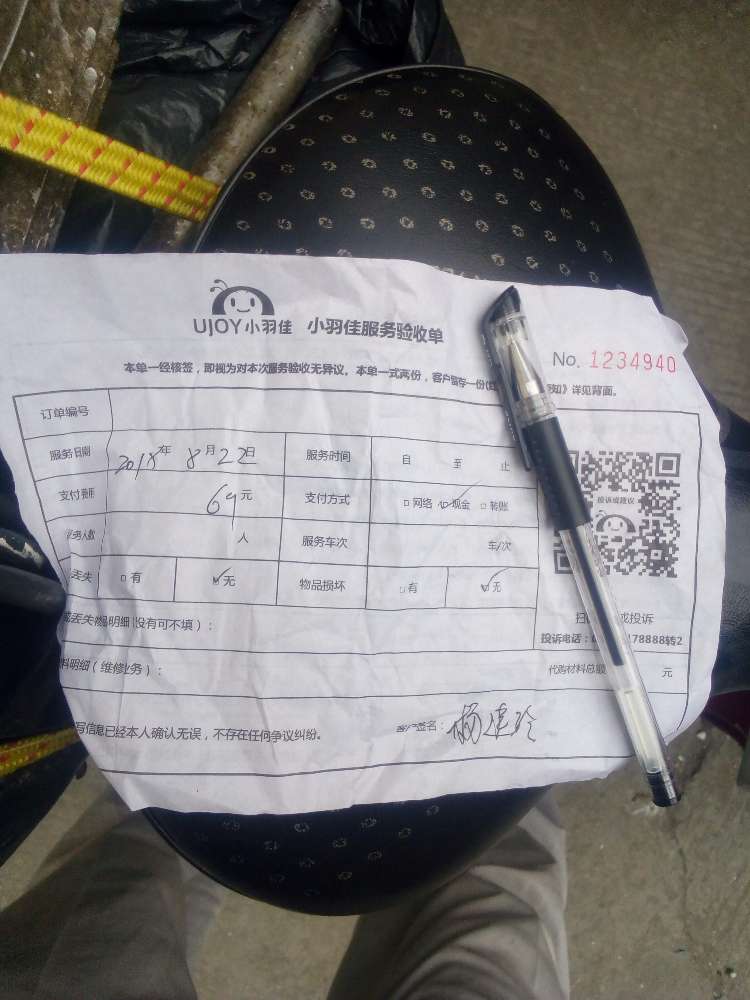 UJOY小羽佳 小羽佳服务验收单
No. 1234940
本单一经核签，即视为对本次服务验收无异议。本单一式两份，客户留存一份 知》详见背面。
订单编号
服务日期 2018年 8月22日 服务时间 自 至 止
支付费用 69元 支付方式 □网络 ☑现金 □转账
务人数 人 服务车次 车/次
丢失 □有 ☑无 物品损坏 □有 ☑无
投诉或建议
扫 或投诉
投诉电话： 178888转2
丢失物品明细（没有可不填）：
料明细（维修业务）： 代购材料总额 元
写信息已经本人确认无误，不存在任何争议纠纷。 客户签名：杨建玲